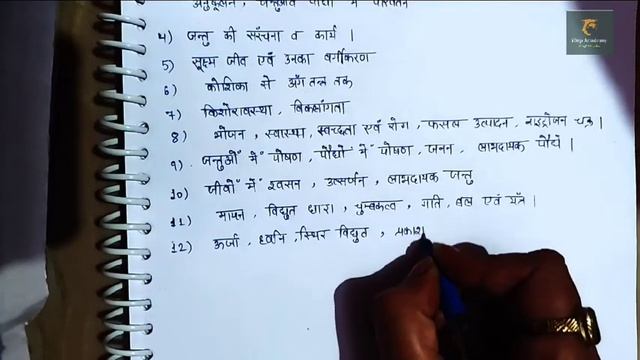 अनुकूलन, जन्तुओं पौधों में परिवर्तन
4) जन्तु की संरचना व कार्य |
5) सूक्ष्म जीव एवं उनका वर्गीकरण
6) कोशिका से अँग तन्त्र तक
7) किशोरावस्था, विकलांगता
8) भोजन, स्वास्थ्य, स्वच्छता एवं रोग, फसल उत्पादन, नाइट्रोजन चक्र |
9) जन्तुओं में पोषण, पौधों में पोषण, जनन, लाभदायक पौधें |
10) जीवों में श्वसन, उत्सर्जन, लाभदायक जन्तु
11) मापन, विद्युत धारा, चुम्बकत्व, गति, बल एवं यँत्र |
12) ऊर्जा, ध्वनि, स्थिर विद्युत, प्रकाश